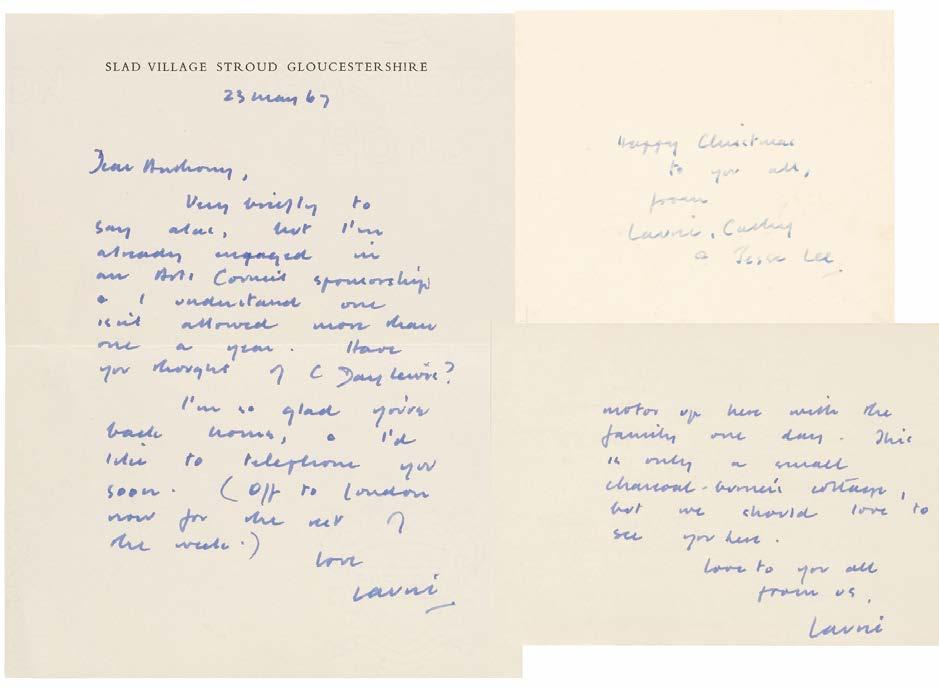 SLAD VILLAGE STROUD GLOUCESTERSHIRE
23 May 67
Dear Anthony,
Very briefly to
say alas, but I'm
already engaged in
an Arts Council sponsorship
& I understand one
isn't allowed more than
one a year. Have
you thought of C Day Lewis?
I'm so glad you're
back home, & I'd
like to telephone you
soon. (Off to London
now for the rest of
the week.)
Love
Laurie
Happy Christmas
to you all,
from
Laurie, Cathy
& Jesse Lee.
motor up here with the
family one day. This
is only a small
charcoal-burner's cottage,
but we should love to
see you here.
Love to you all
from us,
Laurie